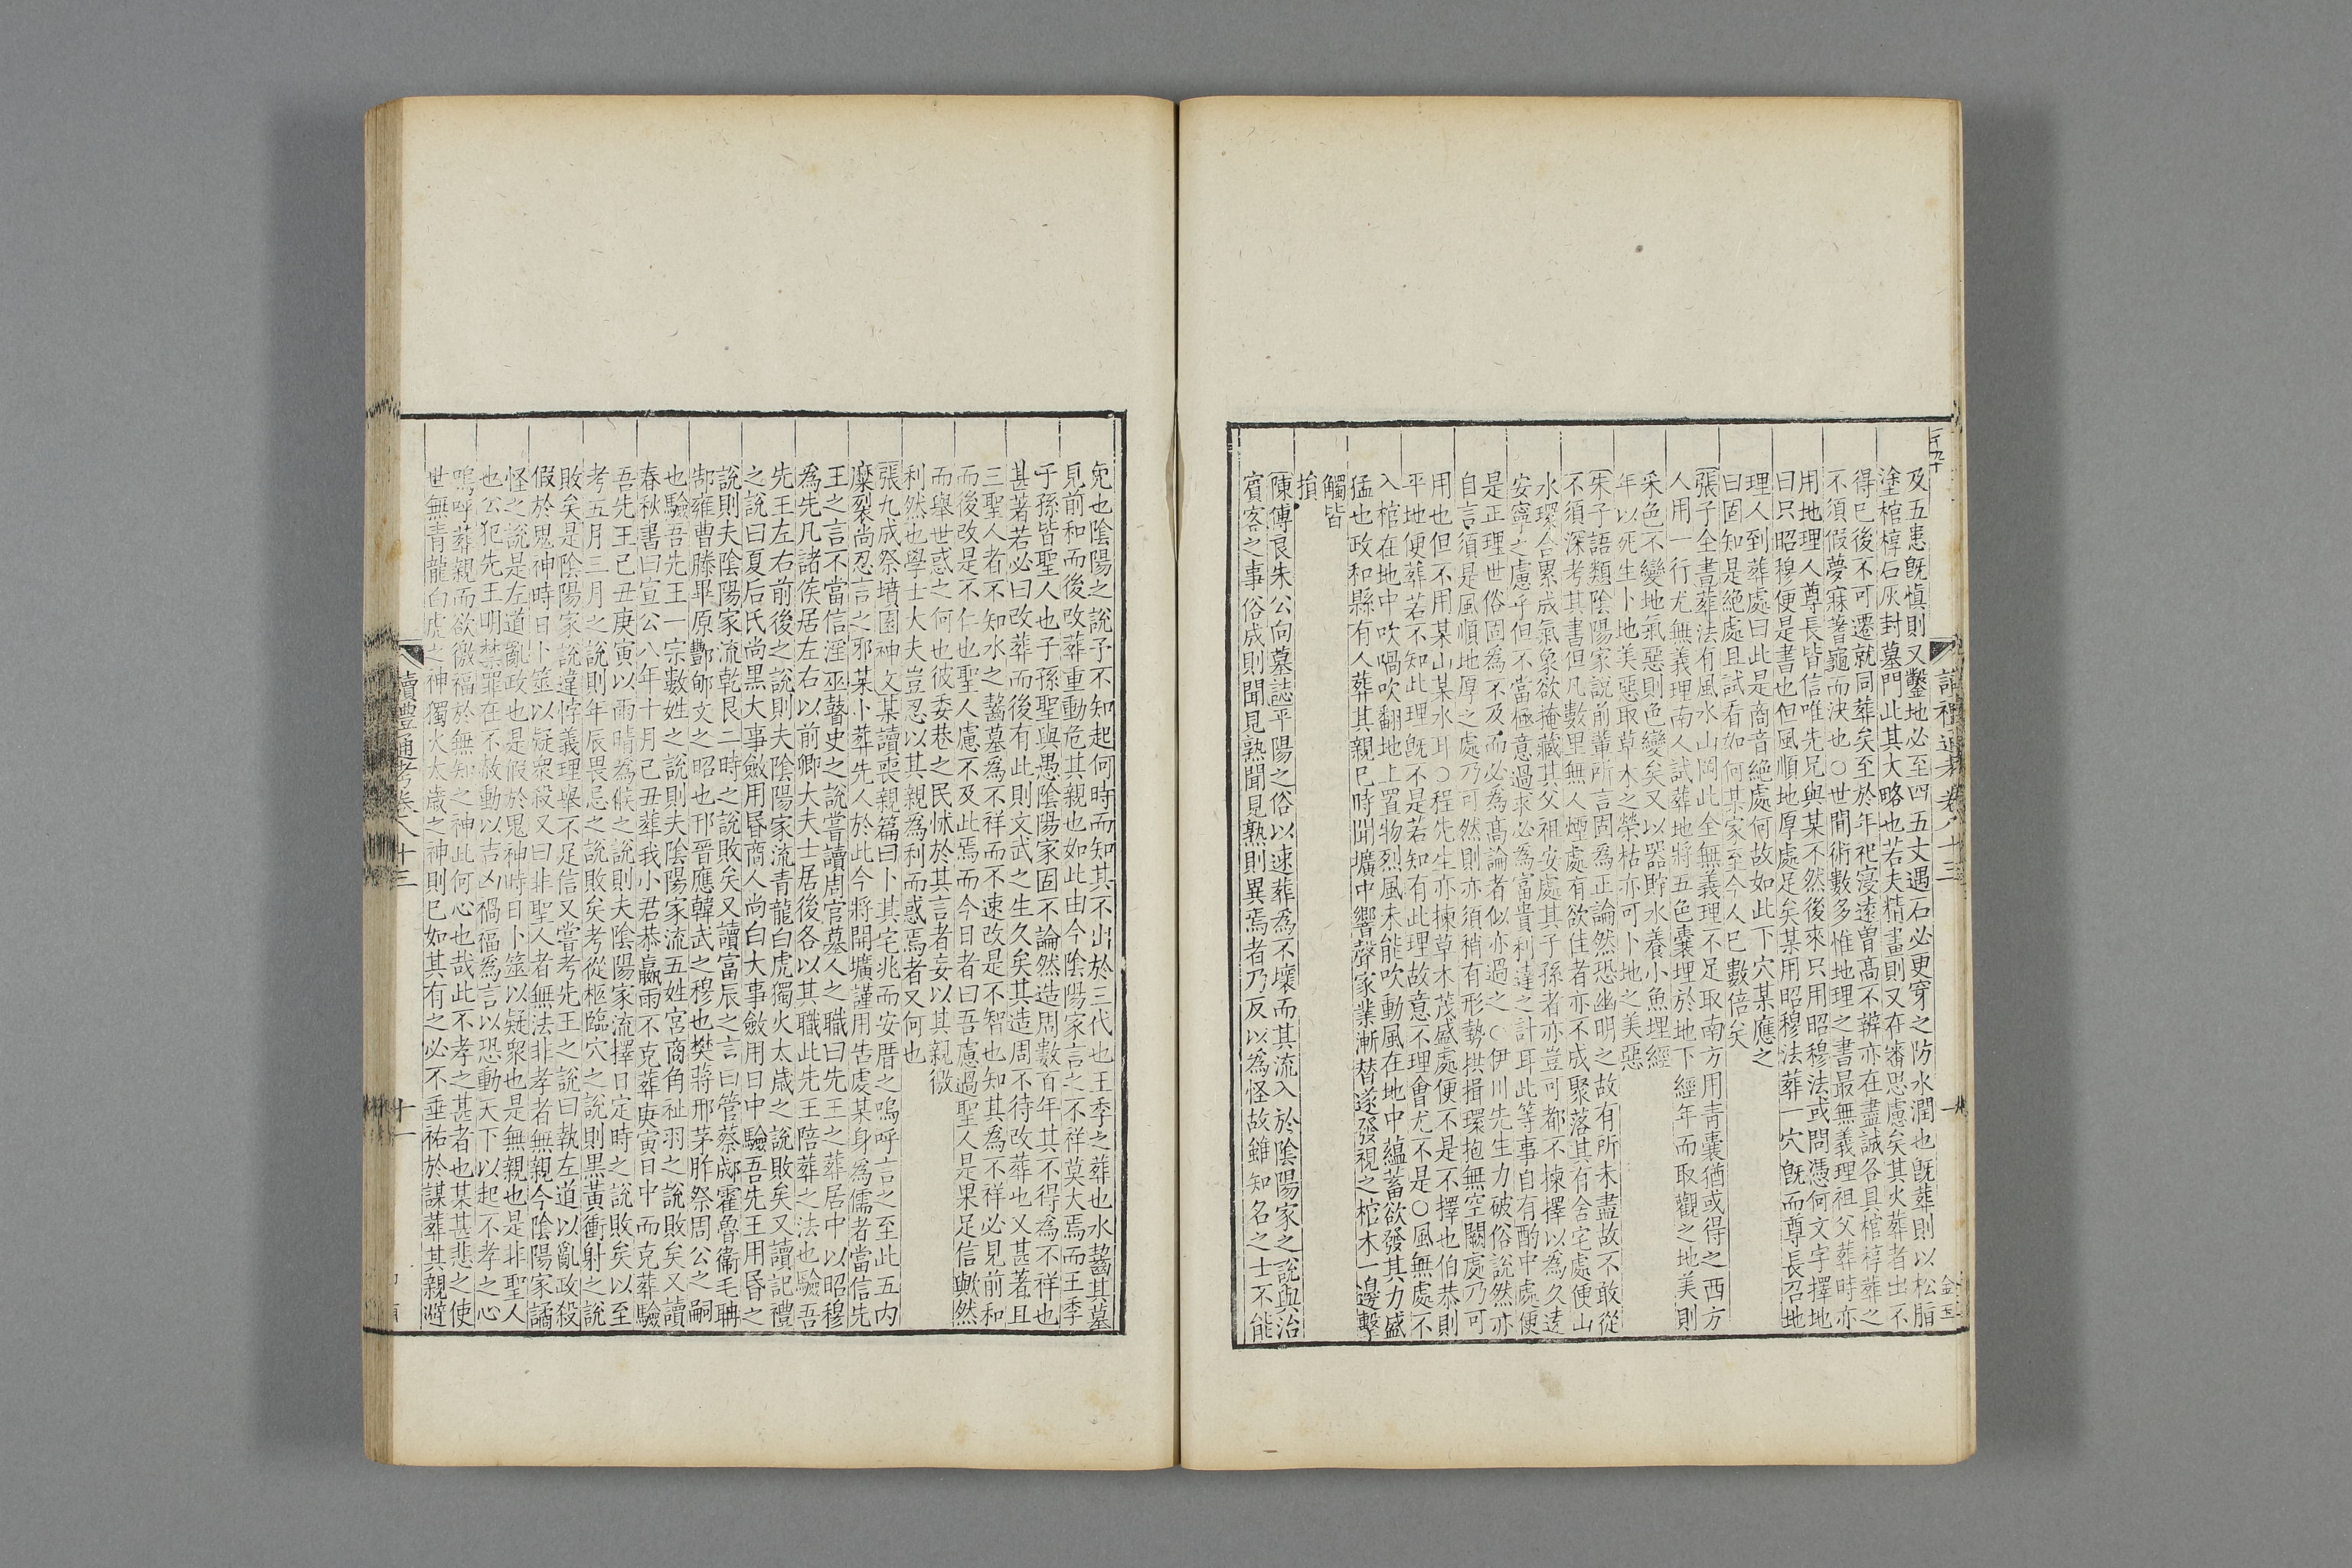 及五患旣愼則又鑿地必至四五丈遇石必更穿之防水潤也旣葬則以松脂
塗棺椁石灰封墓門此其大略也若夫精畫則又在審思慮矣其火葬者出不
得已後不可遷就同葬矣至於年祀寖遠曽髙不辨亦在盡誠各具棺椁葬之
不須假夢寐蓍龜而決也○世間術數多惟地理之書最無義理祖父葬時亦
用地理人尊長皆信唯先兄與某不然後來只用昭穆法或問憑何文字擇地
曰只昭穆便是書也但風順地厚處足矣某用昭穆法葬一穴旣而尊長召地
理人到葬處曰此是商音絶處何故如此下穴某應之
曰固知是絶處且試看如何某家至今人已數倍矣
張子全書葬法有風水山岡此全無義理不足取南方用青囊猶或得之西方
人用一行尤無義理南人試葬地將五色囊埋於地下經年而取觀之地美則
采色不變地氣惡則色變矣又以器貯水養小魚埋經
年以死生卜地美惡取草木之榮枯亦可卜地之美惡
朱子語類陰陽家說前輩所言固爲正論然恐幽明之故有所未盡故不敢從
不須深考其書但凡數里無人煙處有欲住者亦不成聚落其有舍宅處便山
水環合累成氣象欲掩藏其父祖安處其子孫者亦豈可都不揀擇以爲久逺
安寧之慮乎但不當極意過求必爲富貴利達之計耳此等事自有酌中處便
是正理世俗固爲不及而必爲髙論者似亦過之○伊川先生力破俗說然亦
自言須是風順地厚之處乃可然則亦須稍有形勢拱揖環抱無空闕處乃可
用也但不用某山某水耳○程先生亦揀草木茂盛處便不是不擇也伯恭則
平地便葬若不知此理旣不是若知有此理故意不理會尤不是○風無處不
入棺在地中吹喎吹翻地上置物烈風未能吹動風在地中蘊蓄欲發其力盛
猛也政和縣有人葬其親已時聞壙中響聲家業漸替遂發視之棺木一邊擊
觸皆
損
陳傅良朱公向墓誌平陽之俗以速葬爲不壤而其流入於陰陽家之說與治
賓客之事俗成則聞見熟聞見熟則異焉者乃反以爲怪故雖知名之士不能
免也陰陽之說予不知起何時而知其不出於三代也王季之葬也水齧其墓
見前和而後改葬重動危其親也如此由今陰陽家言之不祥莫大焉而王季
子孫皆聖人也子孫聖與愚陰陽家固不論然造周數百年其不得爲不祥也
甚著若必曰改葬而後有此則文武之生久矣其造周不待改葬也又甚著且
三聖人者不知水之齧墓爲不祥而不速改是不智也知其爲不祥必見前和
而後改是不仁也聖人慮不及此焉而今日者曰吾慮過聖人是果足信歟然
而舉世惑之何也彼委巷之民怵於其言者妄以其親徼
利然也學士大夫豈忍以其親爲利而惑焉者又何也
張九成祭墳園神文某讀喪親篇曰卜其宅兆而安厝之嗚呼言之至此五内
糜裂尚忍言之邪某卜葬先人於此今將開壙謹用告處某身爲儒者當信先
王之言不當信淫巫瞽史之說嘗讀周官墓人之職曰先王之葬居中以昭穆
爲先凡諸侯居左右以前卿大夫士居後各以其職此先王陪葬之法也驗吾
先王左右前後之說則夫陰陽家流青龍白虎獨火太歲之說敗矣又讀記禮
之說曰夏后氏尚黑大事斂用昏商人尚白大事斂用日中驗吾先王用昏之
說則夫陰陽家流乾艮二時之說敗矣又讀富辰之言曰管蔡郕霍魯衞毛聃
郜雍曹滕畢原酆郇文之昭也邘晉應韓武之穆也樊蔣邢茅胙祭周公之嗣
也驗吾先王一宗數姓之說則夫陰陽家流五姓宮商角祉羽之說敗矣又讀
春秋書曰宣公八年十月己丑葬我小君恭嬴雨不克葬庚寅日中而克葬驗
吾先王己丑庚寅以雨晴爲候之說則夫陰陽家流擇日定時之說敗矣以至
考五月三月之說則年辰畏忌之說敗矣考從柩臨穴之說則黑黃衝射之說
敗矣是陰陽家說違悖義理舉不足信又嘗考先王之說曰執左道以亂政殺
假於鬼神時日卜筮以疑衆殺又曰非聖人者無法非孝者無親今陰陽家譎
怪之說是左道亂政也是假於鬼神時日卜筮以疑衆也是無親也是非聖人
也公犯先王明禁罪在不赦動以吉凶禍福爲言以恐動天下以起不孝之心
嗚呼葬親而欲徼福於無知之神此何心也哉此不孝之甚者也某甚悲之使
世無青龍白虎之神獨火太歲之神則已如其有之必不垂祐於謀葬其親避
讀禮通考卷八十三
十一